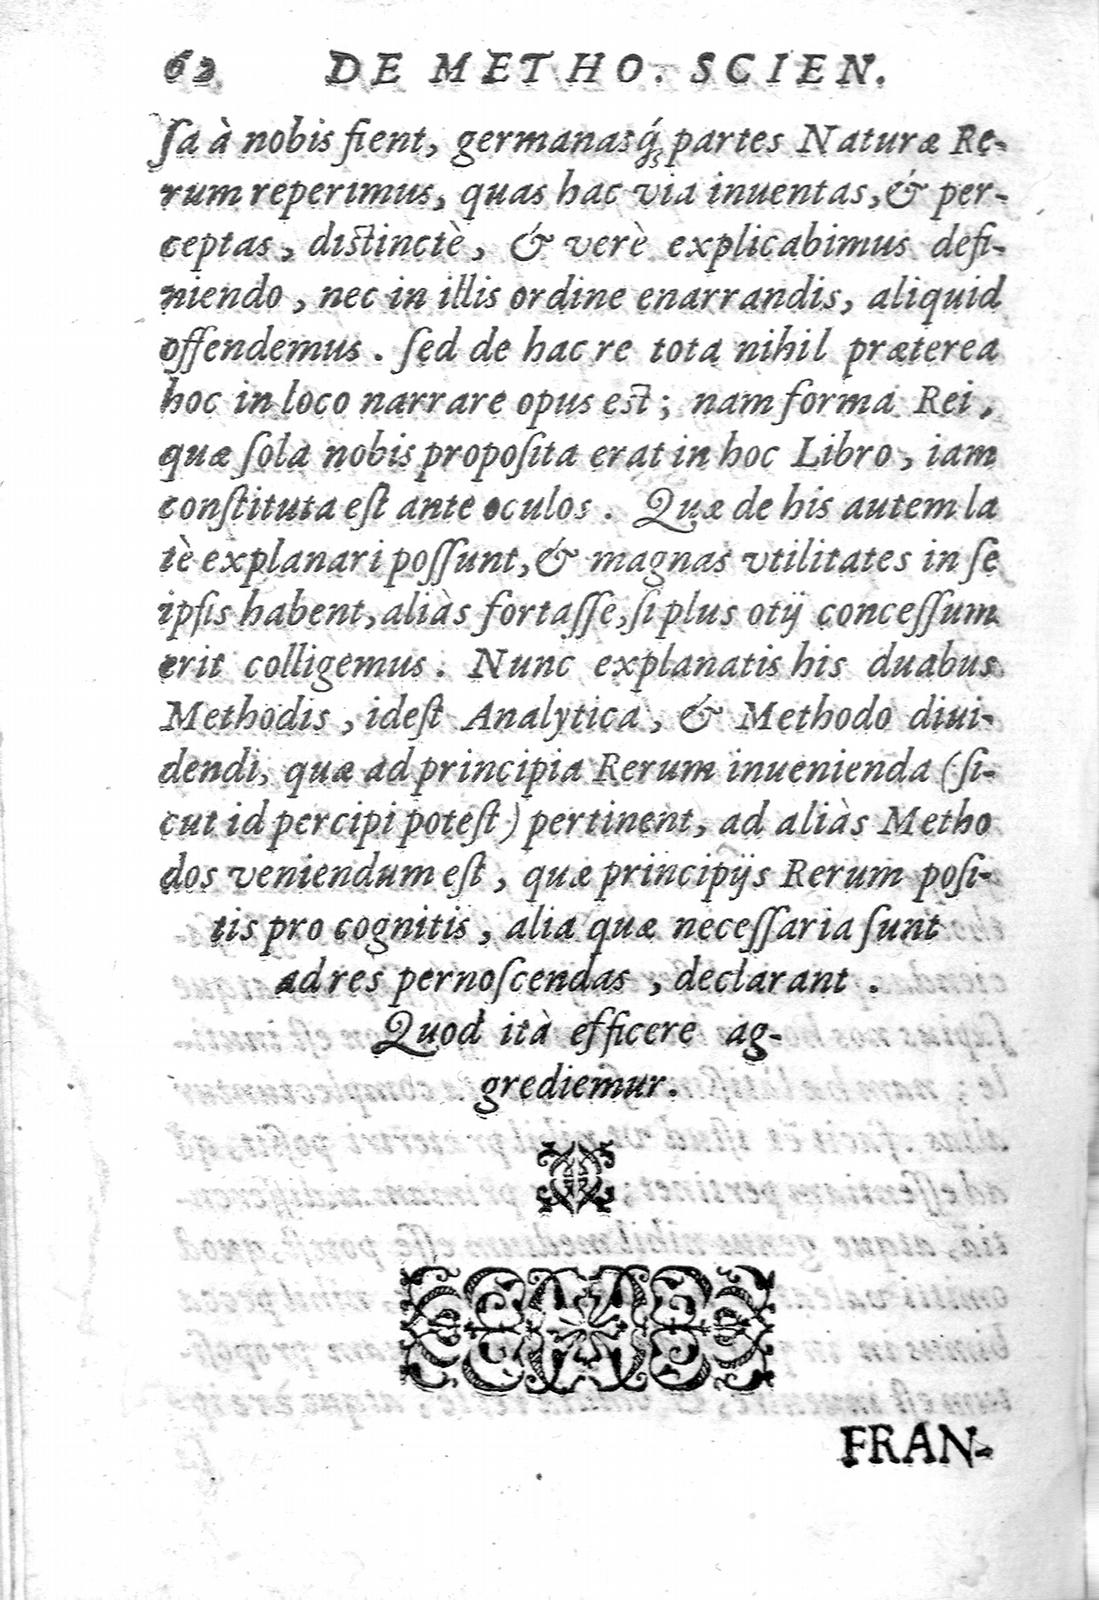 62 DE METHO. SCIEN.
ſa à nobis fient, germanasq́; partes Naturæ Re-
rum reperimus, quas hac via inuentas, & per-
ceptas, distinctè, & verè explicabimus defi-
niendo, nec in illis ordine enarrandis, aliquid
offendemus. ſed de hac re tota nihil præterea
hoc in loco narrare opus est; nam forma Rei,
quæ ſola nobis propoſita erat in hoc Libro, iam
conſtituta eſt ante oculos. Quæ de his autem la
tè explanari poſſunt, & magnas vtilitates in ſe
ipſis habent, aliàs fortaſſe, ſi plus otij conceſſum
erit colligemus. Nunc explanatis his duabus
Methodis, ideſt Analytica, & Methodo diui-
dendi, quæ ad principia Rerum inuenienda (ſi-
cut id percipi poteſt) pertinent, ad aliàs Metho
dos veniendum eſt, quæ principijs Rerum poſi-
tis pro cognitis, alia quæ neceſſaria ſunt
ad res pernoſcendas, declarant.
Quod ità efficere ag-
grediemur.
FRAN-